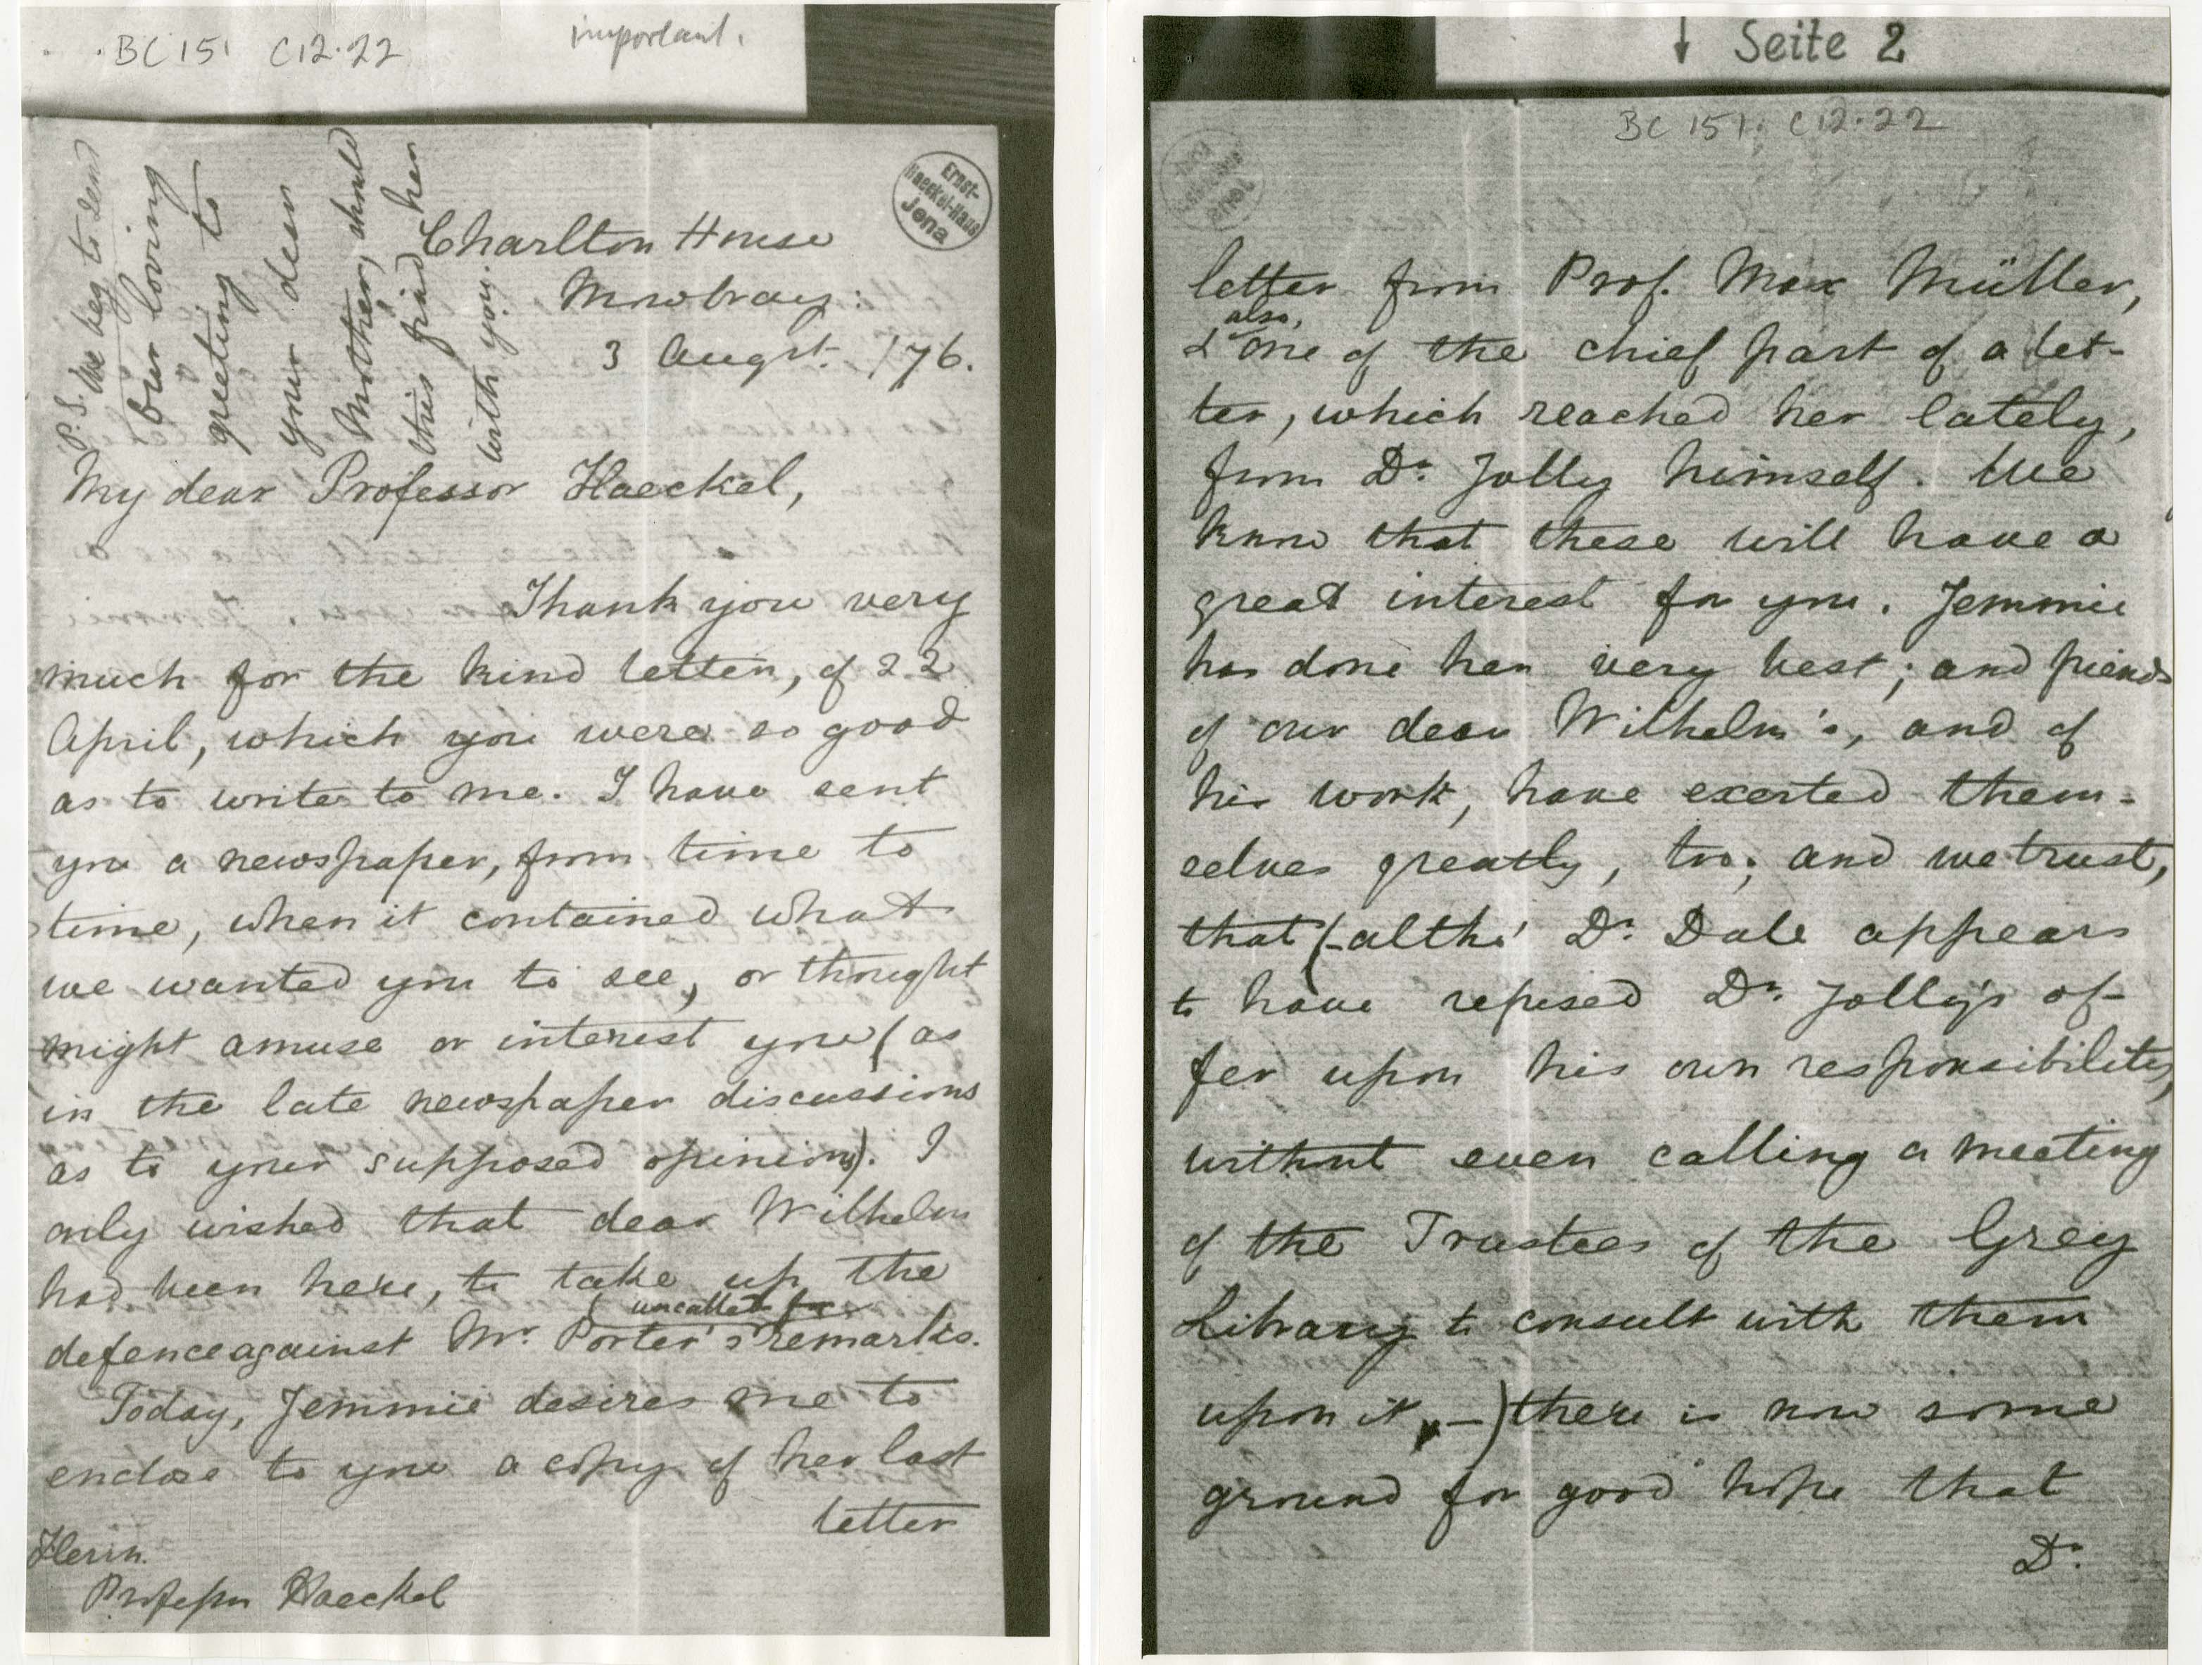 BC 151 C12.22
important.
Ernst-
Haeckel-Haus
Jena
P.S. We beg to send
our loving
greeting to
your dear
Mother, should
this find her
with you.
Charlton House
Mowbray:
3 Augst. /76.
My dear Professor Haeckel,
Thank you very
much for the kind letter, of 22
April, which you were so good
as to write to me. I have sent
you a newspaper, from time to
time, when it contained what
we wanted you to see, or thought
might amuse or interest you (as
in the late newspaper discussions
as to your supposed opinions). I
only wished that dear Wilhelm
had been here, to take up the
uncalled for
defence against Mr. Porter's remarks.
Today, Jemmie desires me to
enclose to you a copy of her last
letter
Herrn
Professor Haeckel
↓ Seite 2
BC 151: C12.22
letter from Prof. Max Müller,
also,
& one of the chief part of a let-
ter, which reached her lately,
from Dr. Jolly himself. We
know that these will have a
great interest for you. Jemmie
has done her very best; and friends
of our dear Wilhelm's, and of
his work, have exerted them-
selves greatly, too; and we trust,
that (-altho' Dr. Dale appears
to have refused Dr. Jolly's of-
fer upon his own responsibility,
without even calling a meeting
of the Trustees of the Grey
Library to consult with them
upon it, -) there is now some
ground for good hope that
Dr.